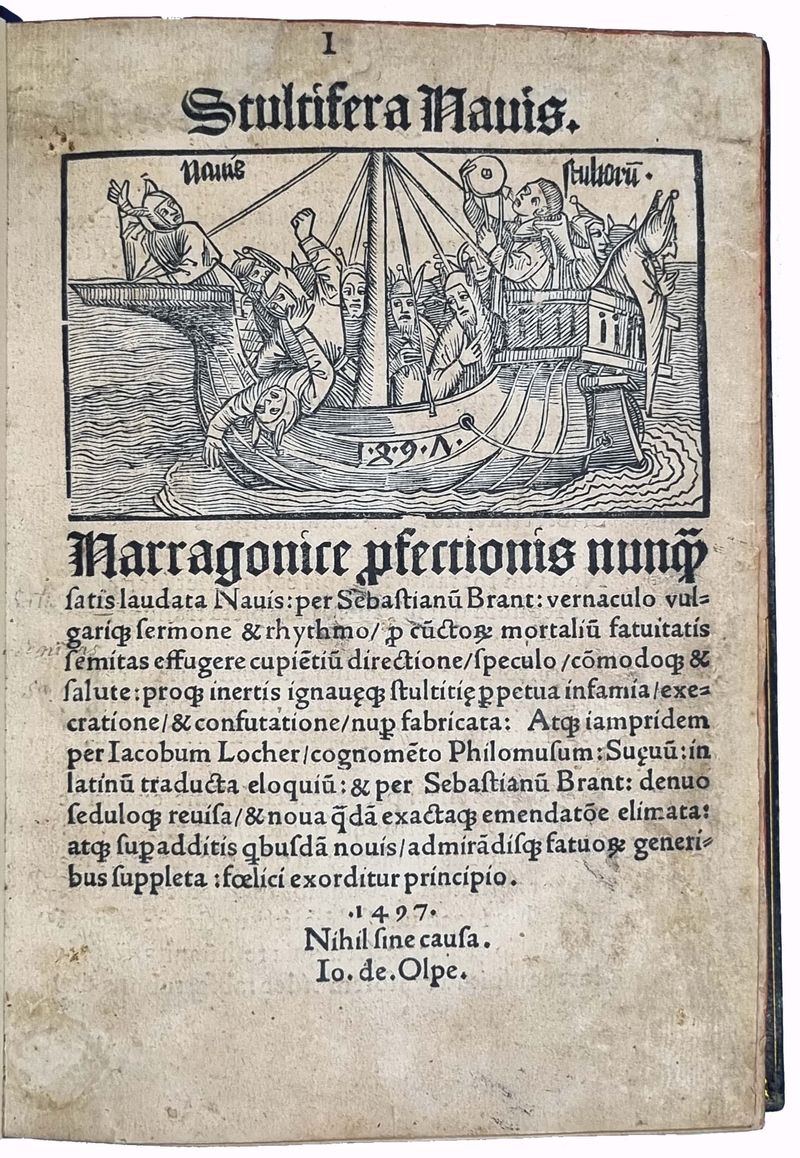 I
Stultifera Nauis.
nauis stultorũ.
1·8·9·Λ·
Narragonice ꝓfectionis nunq̃ꝫ
ſatis laudata Nauis: per Sebaſtianũ Brant: vernaculo vul⸗
gariqꝫ ſermone & rhythmo/ ꝓ cũctoꝝ mortaliũ fatuitatis
ſemitas effugere cupiẽtiũ directione/ſpeculo/cõmodoqꝫ &
ſalute: proqꝫ inertis ignauęqꝫ ſtultitię ꝑpetua infamia/exe⸗
cratione/& confutatione/nuꝑ fabricata: Atqꝫ iampridem
per Iacobum Locher/cognomẽto Philomuſum: Suęuũ: in
latinũ traducta eloquiũ: & per Sebaſtianũ Brant: denuo
ſeduloqꝫ reuiſa/& noua q̃dã exactaqꝫ emendatõe elimata:
atqꝫ ſuꝑadditis qbuſdã nouis/admirãdiſqꝫ fatuoꝝ generi⸗
bus ſuppleta: fœlici exorditur principio.
·1497·
Nihil ſine cauſa.
Io. de. Olpe.